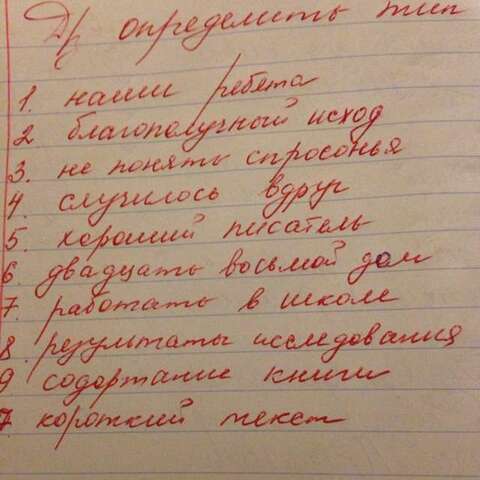 Д/з определить тип
1. наши ребята
2 благополучный исход
3. не понять спросонья
4. случилось вдруг
5. хороший писатель
6. двадцать восьмой дом
7. работать в школе
8. результаты исследования
9 содержание книги
7. короткий текст